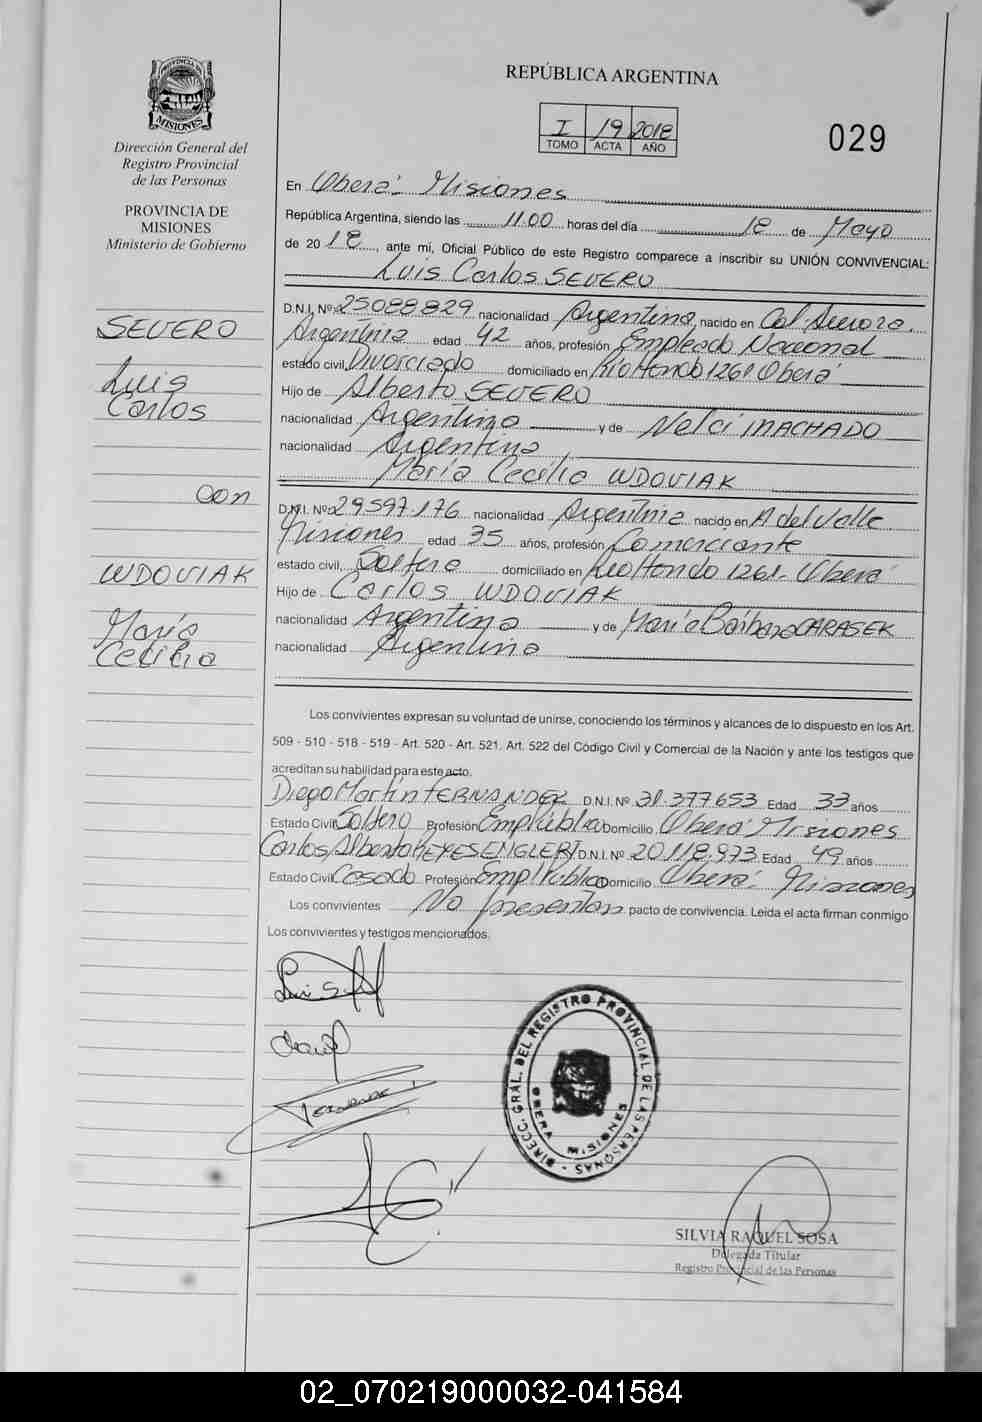 REPÚBLICA ARGENTINA
I 19 2018
TOMO ACTA AÑO
029
PROVINCIA DE MISIONES
Dirección General del
Registro Provincial
de las Personas
PROVINCIA DE
MISIONES
Ministerio de Gobierno
SEVERO
Luis
Carlos
con
WDOVIAK
María
Cecilia
En Oberá - Misiones
República Argentina, siendo las 11.00 horas del día 18 de Mayo
de 20 18, ante mí, Oficial Público de este Registro comparece a inscribir su UNIÓN CONVIVENCIAL:
Luis Carlos SEVERO
D.N.I. Nº 25088829 nacionalidad Argentina, nacido en Col. Aurora.
Argentina edad 42 años, profesión Empleado Nacional
estado civil, Divorciado domiciliado en Rio Hondo 1261 Oberá
Hijo de Alberto SEVERO
nacionalidad Argentina y de Nelci MACHADO
nacionalidad Argentina
María Cecilia WDOVIAK
D.N.I. Nº 29597.176 nacionalidad Argentina nacido en A del Valle
Misiones edad 35 años, profesión Comerciante
estado civil, Soltera domiciliado en Rio Hondo 1261 - Oberá
Hijo de Carlos WDOVIAK
nacionalidad Argentina y de María Bárbara CARASEK
nacionalidad Argentina
Los convivientes expresan su voluntad de unirse, conociendo los términos y alcances de lo dispuesto en los Art.
509 - 510 - 518 - 519 - Art. 520 - Art. 521, Art. 522 del Código Civil y Comercial de la Nación y ante los testigos que
acreditan su habilidad para este acto.
Diego Martín FERNANDEZ D.N.I. Nº 31.377653 Edad 33 años
Estado Civil Soltero Profesión Emp Pública Domicilio Oberá Misiones
Carlos Alberto REYES ENGLERT D.N.I. Nº 20.118.973 Edad 49 años
Estado Civil Casado Profesión Empl Público Domicilio Oberá - Misiones
Los convivientes No presentan pacto de convivencia. Leida el acta firman conmigo
Los convivientes y testigos mencionados.
DIRECC. GRAL. DEL REGISTRO PROVINCIAL DE LAS PERSONAS -
OBERA MISIONES
SILVIA RAQUEL SOSA
Delegada Titular
Registro Provincial de las Personas
02_070219000032-041584